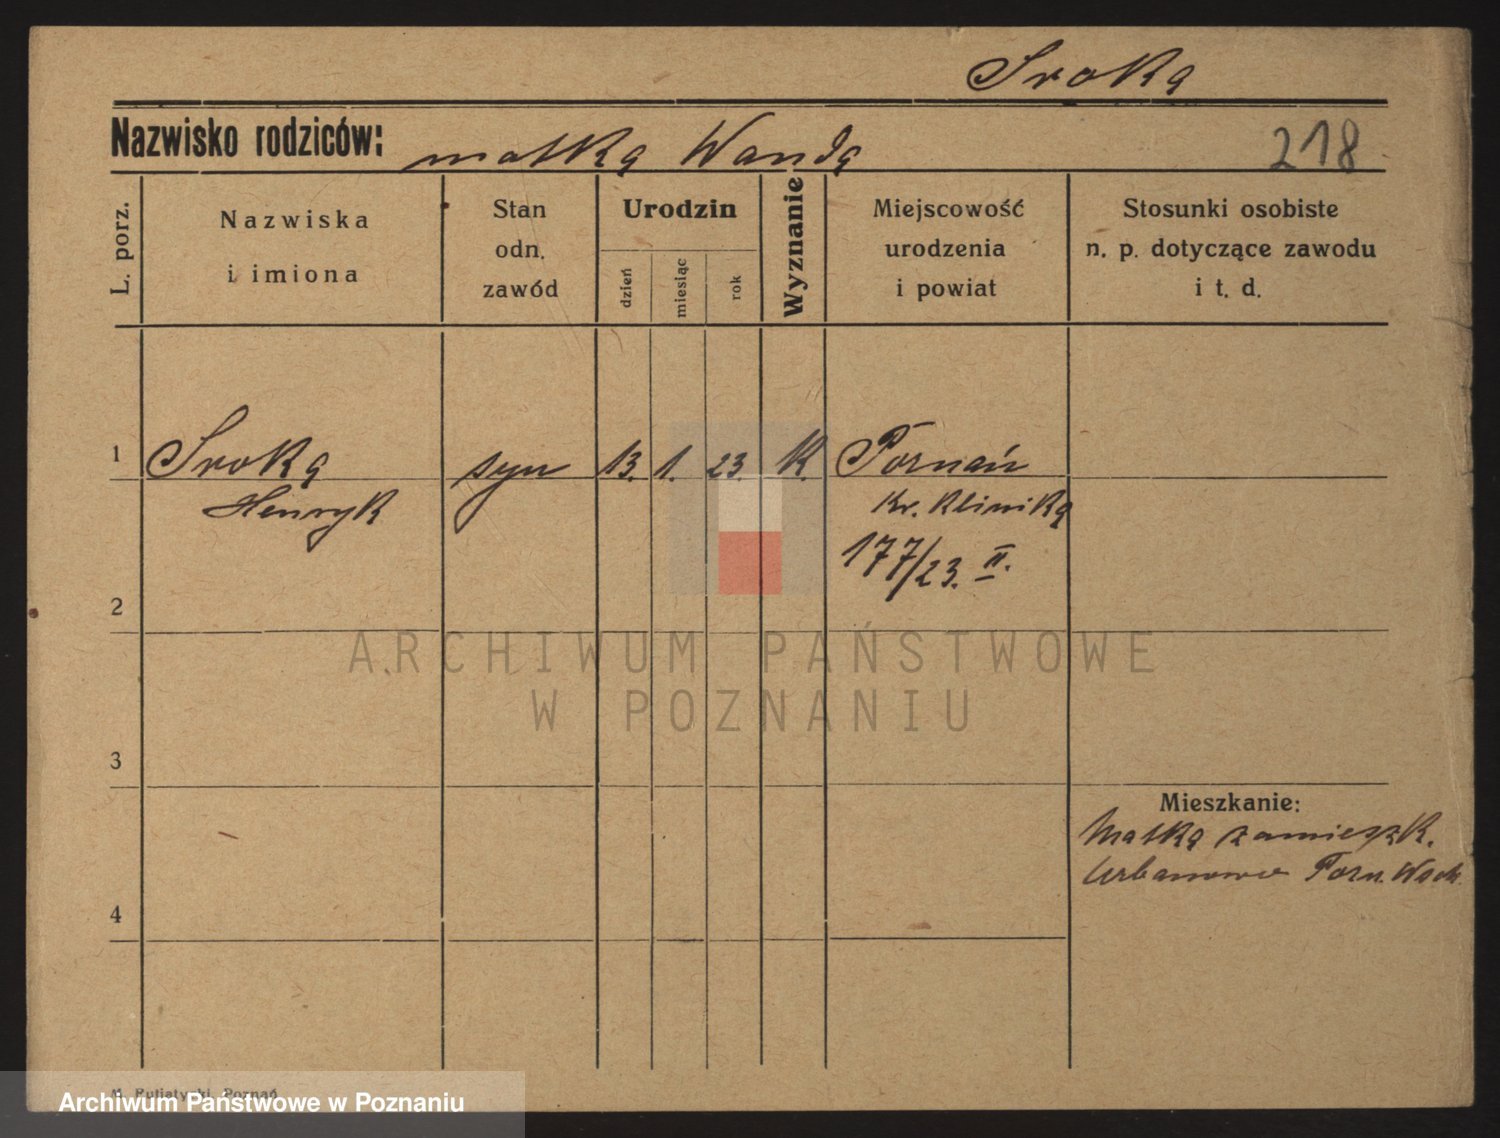 Sroka
Nazwisko rodziców: matka Wanda 218
L. porz.
Nazwiska
i imiona
Stan
odn.
zawód
Urodzin
dzień
miesiąc
rok
Wyznanie
Miejscowość
urodzenia
i powiat
Stosunki osobiste
n. p. dotyczące zawodu
i t. d.
1 Sroka syn 13. 1. 23. K. Poznań
Henryk Kr. Klinika
177/23. II.
2
ARCHIWUM PAŃSTWOWE
W POZNANIU
3
Mieszkanie:
Matka zamieszk.
Urbanowo Pozn. Wsch.
4
M. Putiatycki, Poznań
Archiwum Państwowe w Poznaniu